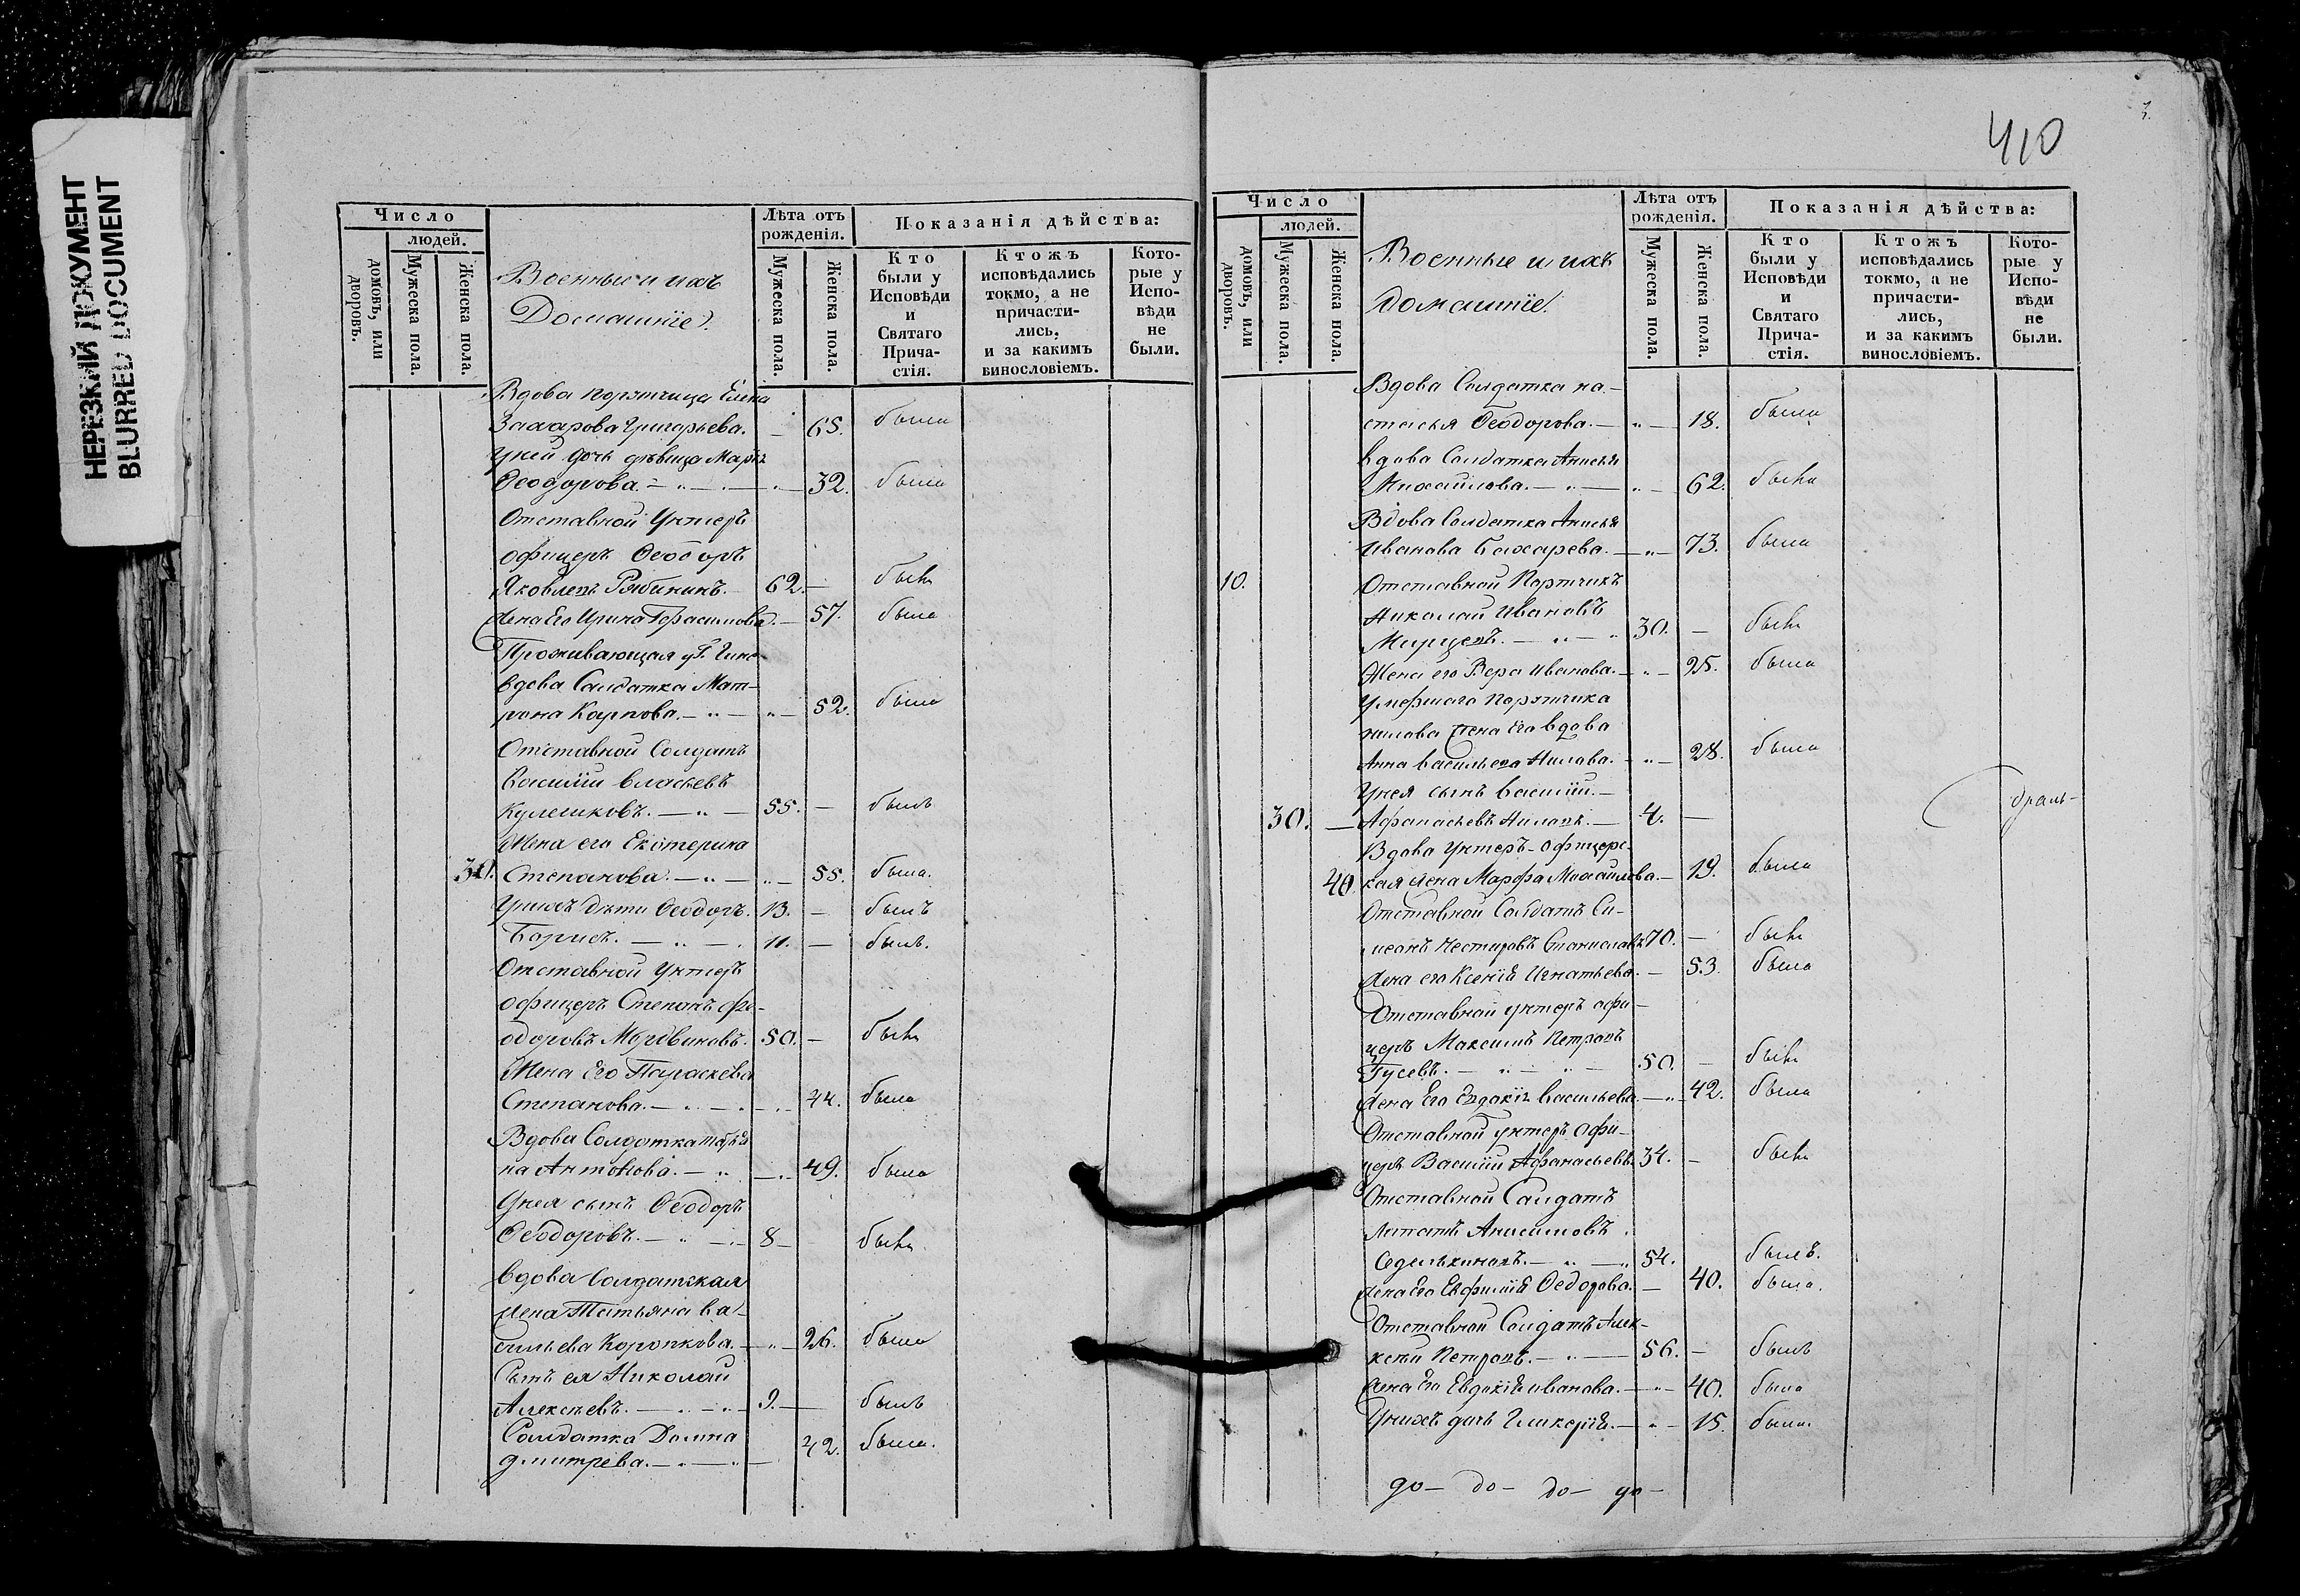 НЕРЕЗКИЙ ДОКУМЕНТ
BLURRED DOCUMENT
Число
людей.
домовъ, или дворовъ.
Мужеска пола.
Женска пола.
Военные и ихъ
Домашніе.
Лѣта отъ рожденія.
Мужеска пола.
Женска пола.
Показанія дѣйства:
Кто были у Исповѣди и Святаго Прича-стія.
Ктожъ исповѣдались токмо, а не причасти-лись, и за какимъ винословіемъ.
Кото-рые у Испо-вѣди не были.
Вдова порутчица Елена
Захарова Григорьева. — 65. была
У ней дочь дѣвица Марья
Ѳеодорова. — „ — „ — 32. была
Отставной Унтеръ
офицеръ Ѳеодоръ
Яковлевъ Рябининъ. 62. — былъ
Жена Его Ирина Герасимова. — 57. была
Проживающая у Г.
вдова Салдатка Мат-
рона Карпова. — „ — „ — 52. была
Отставной Солдатъ
Василій Власьевъ
Кулешковъ. — „ — 55. — былъ
Жена его Екатерина
30. Степанова. — „ — „ — 55. была.
У нихъ дѣти Ѳеодоръ. 13. — былъ
Борисъ. — „ — 11. — былъ.
Отставной Унтеръ
офицеръ Степанъ Фе-
одоровъ Мордвиновъ. 50. — былъ
Жена Его Параскева
Степанова. — „ — „ — 44. была
Вдова Солдатка
на Антонова. — „ — „ — 49. была
У нея сынъ Ѳеодоръ
Ѳеодоровъ. — „ — 8 — былъ
вдова Солдатская
жена Татьяна Ва-
сильева Коропкова. — „ — 26. была
Сынъ ея Николай
Алексѣевъ. — „ — 9. — былъ
Солдатка Домна
Дмитрева. — „ — „ — 42. была.
410
Число
людей.
домовъ, или дворовъ.
Мужеска пола.
Женска пола.
Военные и ихъ
домашніе.
Лѣта отъ рожденія.
Мужеска пола.
Женска пола.
Показанія дѣйства:
Кто были у Исповѣди и Святаго Прича-стія.
Ктожъ исповѣдались токмо, а не причасти-лись, и за какимъ винословіемъ.
Кото-рые у Испо-вѣди не были.
Вдова Солдатка На-
стасья Ѳеодорова. — „ — 18. была
вдова Солдатка Анисья
Михайлова. — „ — „ — 62. была
Вдова Солдатка Анисья
Иванова Бахарева. — „ — 73. была
10. Отставной Портчикъ
Николай Ивановъ
— „ — „ 30. — былъ
Жена его Вера Иванова. — „ — 25. была
Умершаго Порутчика
Нилова жена Его вдова
Анна Васильева Нилова. — „ — 28. была
У нея сынъ Василій. —
30. — Афанасьевъ Ниловъ. — 4. —
Вдова Унтеръ-Офицерс-
40. кая жена Марфа Михайлова. — 19. была
Отставной Солдатъ Си-
меонъ Нестировъ Станиславъ 70. — былъ
Жена его Ксенія Игнатьева. — 53. была
Отставной унтеръ офи-
церъ Максимъ Петровъ
Гусевъ. — „ — „ — 50. — былъ
Жена Его Евдокія Васильева. — „ — 42. была
Отставной унтеръ офи-
церъ Василій Афанасьевъ. 34. — былъ
Отставной Салдатъ
Анисимовъ
Седелькиновъ. — „ — „ 54. былъ.
Жена Его Евфимія Ѳедорова. — 40. была.
Отставной Солдатъ Алек-
кѣй Петровъ. — „ — 56. — былъ
Жена Его Евдокія Иванова. — „ — 40. была
У нихъ дочь Гликерія. — „ — 15. была.
до — до — до — до —